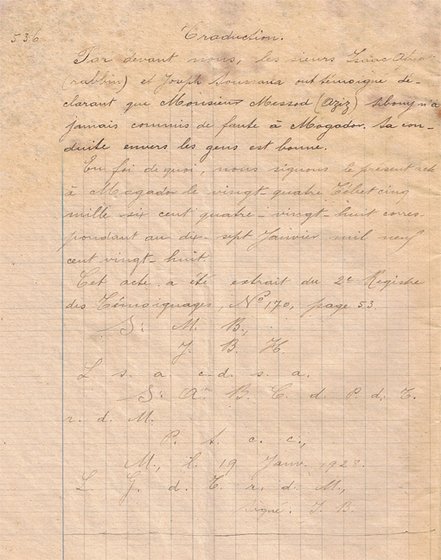 536 Traduction.
Par devant nous, les sieurs Isaac
(rabbin) et Joseph ont témoigné dé-
clarant que Monsieur Messod (Aziz) Sibony n'a
jamais commis de faute à Mogador. Sa con-
duite envers les gens est bonne.
En foi de quoi, nous signons le présent acte
à Mogador le vingt-quatre Tébet cinq
mille six cent quatre-vingt-huit corres-
pondant au dix-sept Janvier mil neuf
cent vingt-huit.
Cet acte a été extrait du 2e Registre
des Témoignages, No 170, page 53
S: M. B.,
J. B. H
L s a c.d. s. a.
S: B. C. d. P. d. T.
r. d. M.
P. t. c. c.,
M., l. 19 Janv. 1928.
L G. d. T. r. d. M.,
signé. J. B.